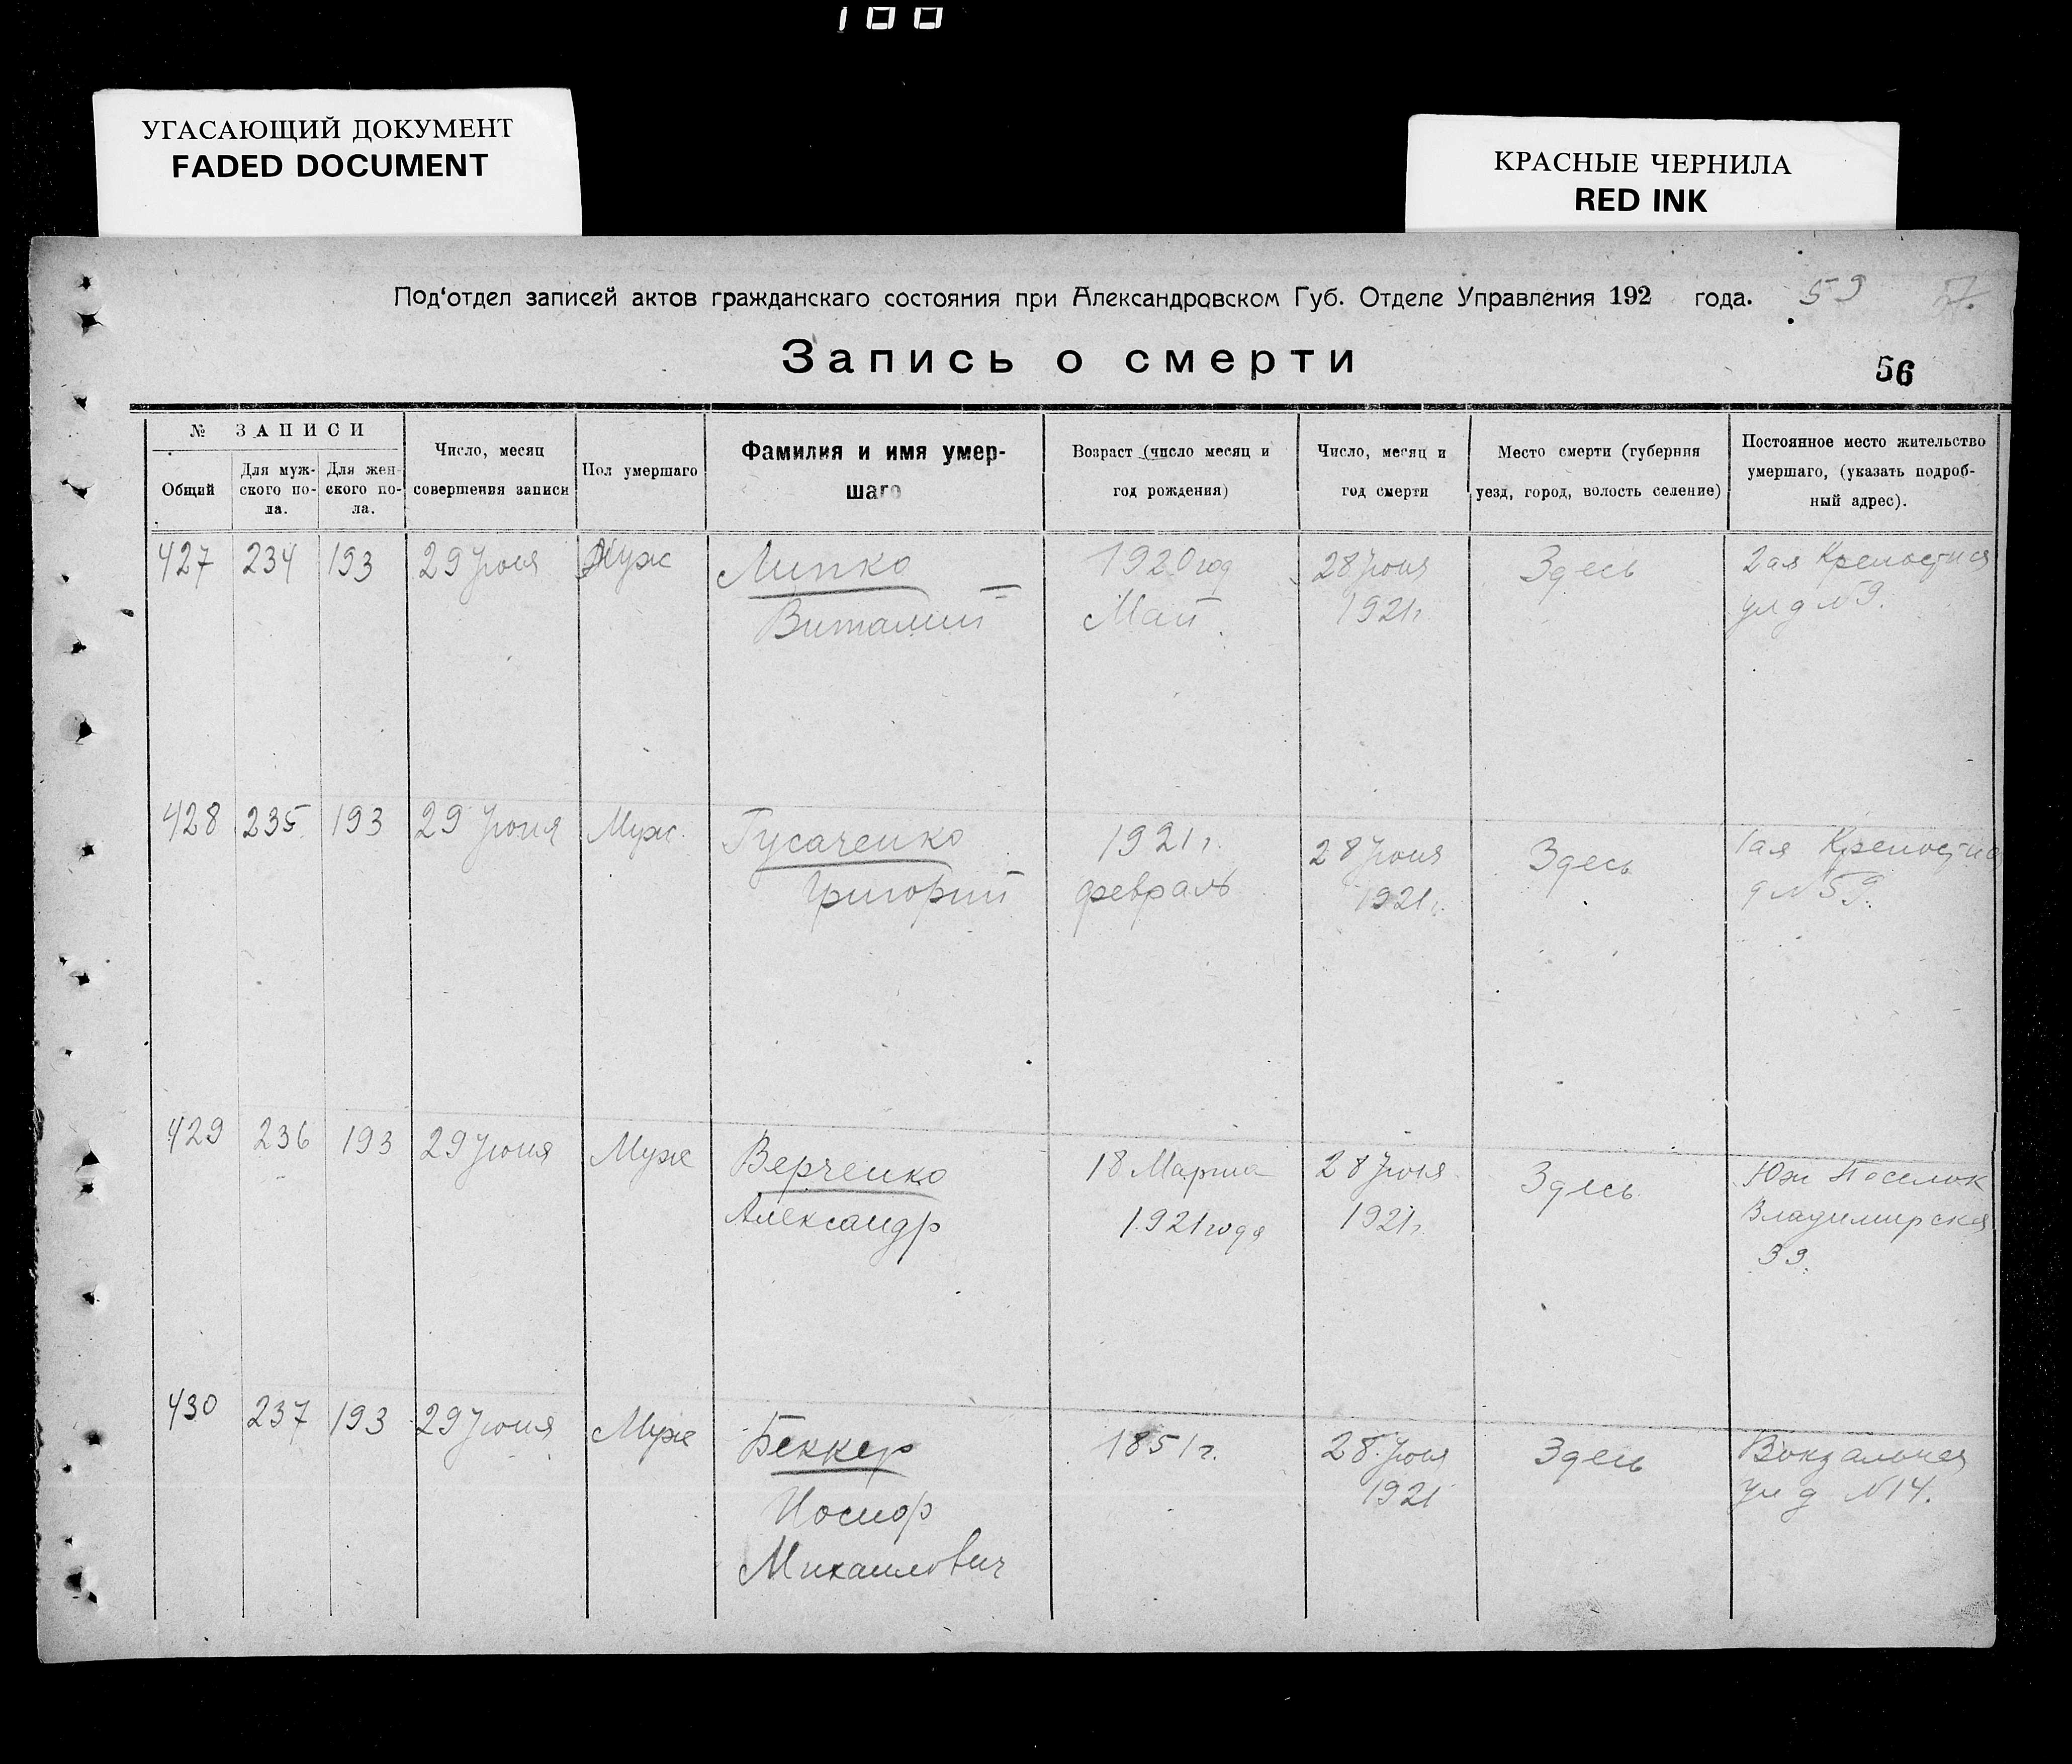 100
УГАСАЮЩИЙ ДОКУМЕНТ
FADED DOCUMENT
КРАСНЫЕ ЧЕРНИЛА
RED INK
Под'отдел записей актов гражданскаго состояния при Александровском Губ. Отделе Управления 192 года. 59 57.
Запись о смерти
56
№ ЗАПИСИ
Общий
Для муж-
ского по-
ла.
Для жен-
ского по-
ла.
Число, месяц
совершения записи
Пол умершаго
Фамилия и имя умер-
шаго
Возраст (число месяц и
год рождения)
Число, месяц и
год смерти
Место смерти (губерния
уезд, город, волость селение)
Постоянное место жительство
умершаго, (указать подроб-
ный адрес).
427
234
193
29 Июня
Муж
Липко
Виталий
1920 год
Май
28 Июня
1921 г.
Здесь
2ая Крепостная
ул д №9.
428
235.
193
29 Июня
Муж.
Гусаченко
Григорий
1921 г.
февраль
28 Июня
1921 г.
Здесь
1ая Крепостна
д №59.
429
236
193
29 Июня
Муж
Верченко
Александр
18 Марта
1921 года
28 Июня
1921 г.
Здесь
Юж Поселок
Владимирская
39.
430
237
193
29 Июня
Муж
Беккер
Иосиф
Михаилович
1851 г.
28. Июня
1921
Здесь
Вокзальная
ул д №14.